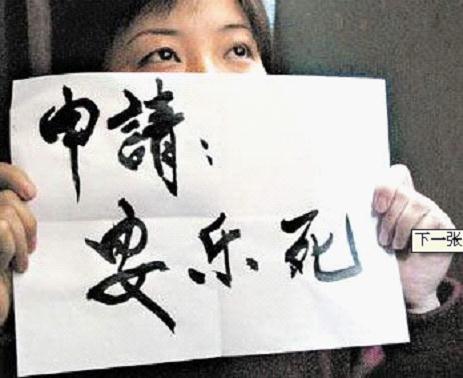 申請：
要乐死
下一张